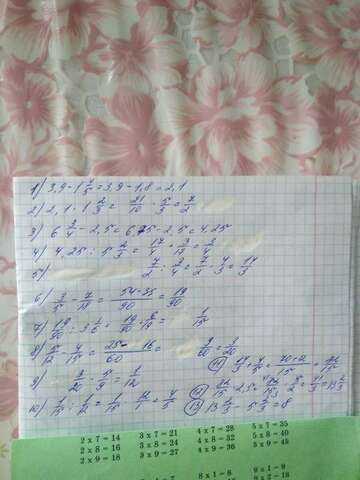 1) 3,9 - 1 4/5 = 3,9 - 1,8 = 2,1
2) 2,1 · 1 2/3 = 21/10 · 5/3 = 7/2
3) 6 3/4 - 2,5 = 6,75 - 2,5 = 4,25
4) 4,25 : 5 2/3 = 17/4 · 3/17 = 3/4
5) 7/2 : 3/4 = 7/2 · 4/3 = 14/3
6) 3/5 - 7/18 = 54-35/90 = 19/90
7) 19/90 : 3 1/6 = 19/90 · 6/19 = 1/15
8) 5/12 - 4/15 = 25 - 16/60 = 3/20
9) 3/20 · 5/9 = 1/12
10) 1/15 : 1/12 = 1/15 · 12/1 = 4/5
11) 14/3 + 4/5 = 70+12/15 = 82/15
12)
13) 13 2/3 - 5 2/3 = 8
2 x 7 = 14 3 x 7 = 21 4 x 7 = 28 5 x 7 = 35
2 x 8 = 16 3 x 8 = 24 4 x 8 = 32 5 x 8 = 40
2 x 9 = 18 3 x 9 = 27 4 x 9 = 36 5 x 9 = 45
8 x 1 = 8 9 x 1 = 9
9 x 2 = 18